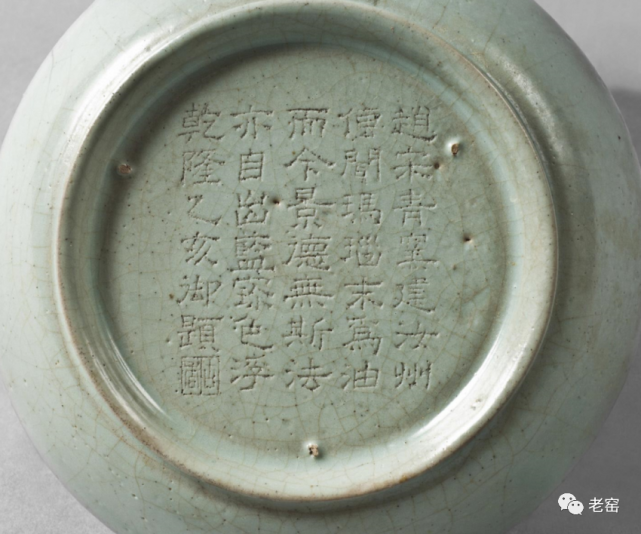 趙宋青窰建汝州
傳聞瑪瑙末爲油
而今景德無斯法
亦自出藍寳色浮
乾隆乙亥御題
老窑